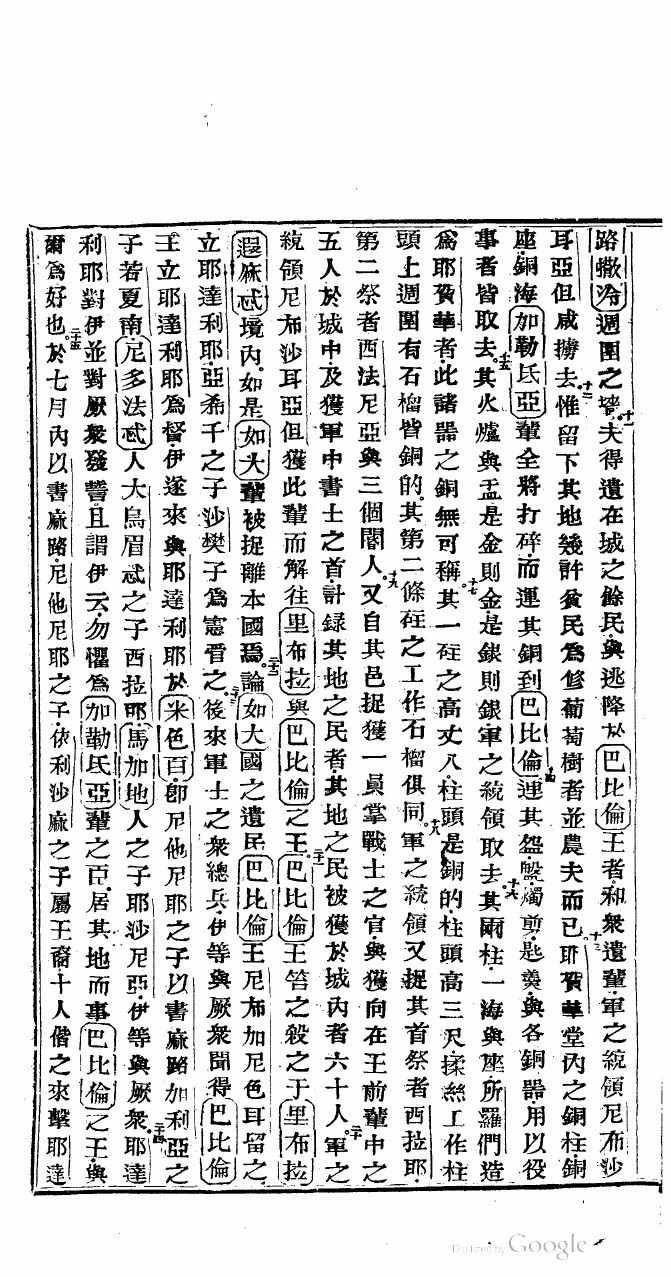 路撒冷週圍之墻十一夫得遺在城之餘民與逃降於巴比倫王者和衆遺輩軍之統領尼布沙
耳亞但咸擄去十二惟留下其地幾許貧民爲修葡萄樹者並農夫而已十三耶賀華堂內之銅柱銅
座銅海加勒氐亞輩全將打碎而運其銅到巴比倫十四連其盌盤燭剪匙羹與各銅器用以役
事者皆取去十五其火爐與盂是金則金是銀則銀軍之統領取去十六其兩柱一海與座所羅們造
爲耶賀華者此諸器之銅無可稱十七其一柱之高丈八柱頭是銅的柱頭高三尺揉絲工作柱
頭上週圍有石榴皆銅的其第二條柱之工作石榴俱同十八軍之統領又捉其首祭者西拉耶
第二祭者西法尼亞與三個閽人十九又自其邑捉獲一員掌戰士之官與獲向在王前輩中之
五人於城中及獲軍中書士之首計録其地之民者其地之民被獲於城內者六十人二十軍之
統領尼布沙耳亞但獲此輩而解往里布拉與巴比倫之王二十一巴比倫王笞之殺之于里布拉
還麻忒境內如是如大輩被捉離本國焉二十二論如大國之遺民巴比倫王尼布加尼色耳留之
立耶達利耶亞希千之子沙樊子爲憲督之二十三後來軍士之衆總兵伊等與厥衆聞得巴比倫
王立耶達利耶爲督伊遂來與耶達利耶於米色百卽尼他尼耶之子以書麻路加利亞之
子若夏南尼多法忒人大鳥眉忒之子西拉耶馬加地人之子耶沙尼亞伊等與厥衆二十四耶達
利耶對伊並對厥衆發誓且謂伊云勿懼爲加勒氐亞輩之臣居其地而事巴比倫之王與
爾爲好也二十五於七月內以書麻路尼他尼耶之子依利沙麻之子屬王裔十人偕之來擊耶達
Digitized by Google